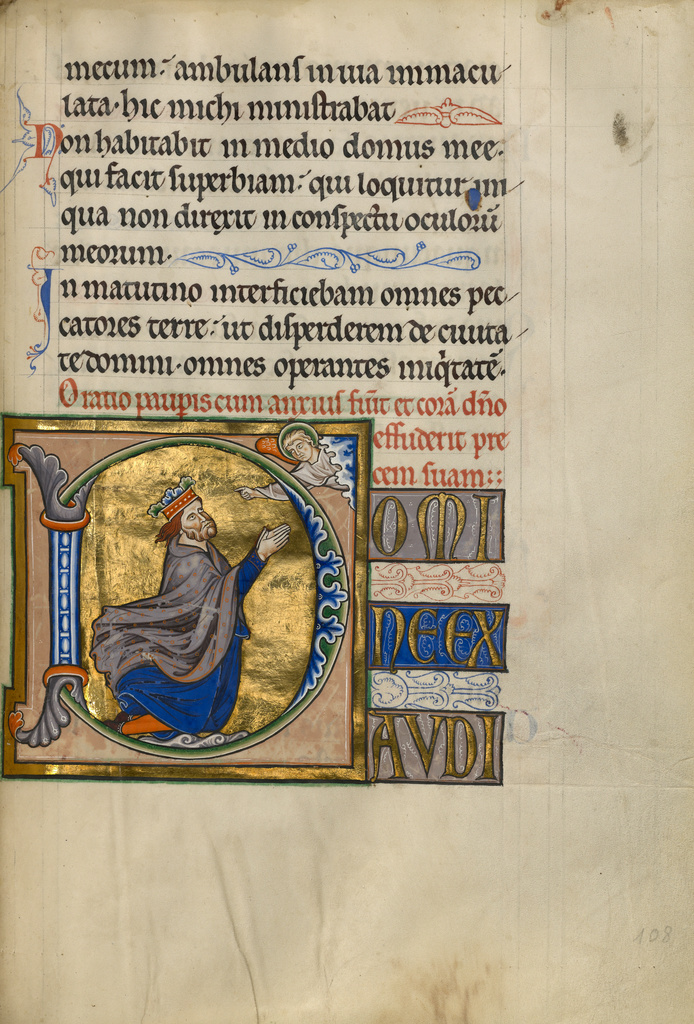 mecum·́ ambulans in uia immacu
lata· hic michi ministrabat
Non habitabit in medio domus mee·
qui facit superbiam·́ qui loquitur in
qua non direxit in conspectu oculoꝝ̄
meorum·
In matutino interficiebam omnes pec
catores terre·́ ut disperderem de ciuita
te domini· omnes operantes iniq̇tatē·
Oratio paupis cum anxius fūit et corā dn̄o
effuderit pre
cem suam::
DOMI
NE EX
AVDI
108